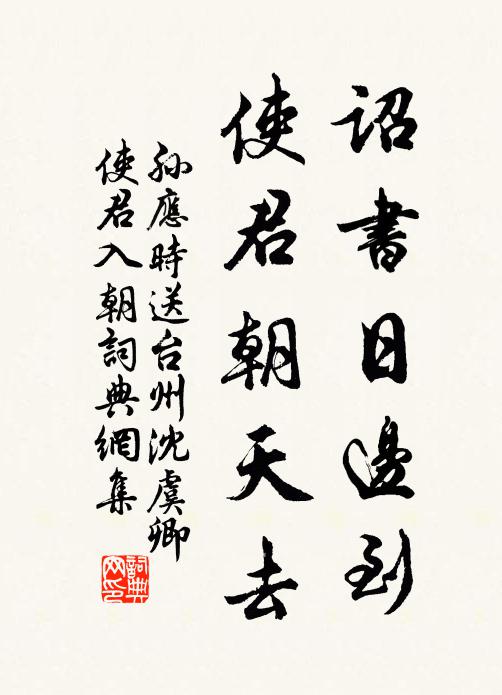 詔書日邊到
使君朝天去
孫應時送台州沈虞卿
使君入朝詞典網集
詞典
网印